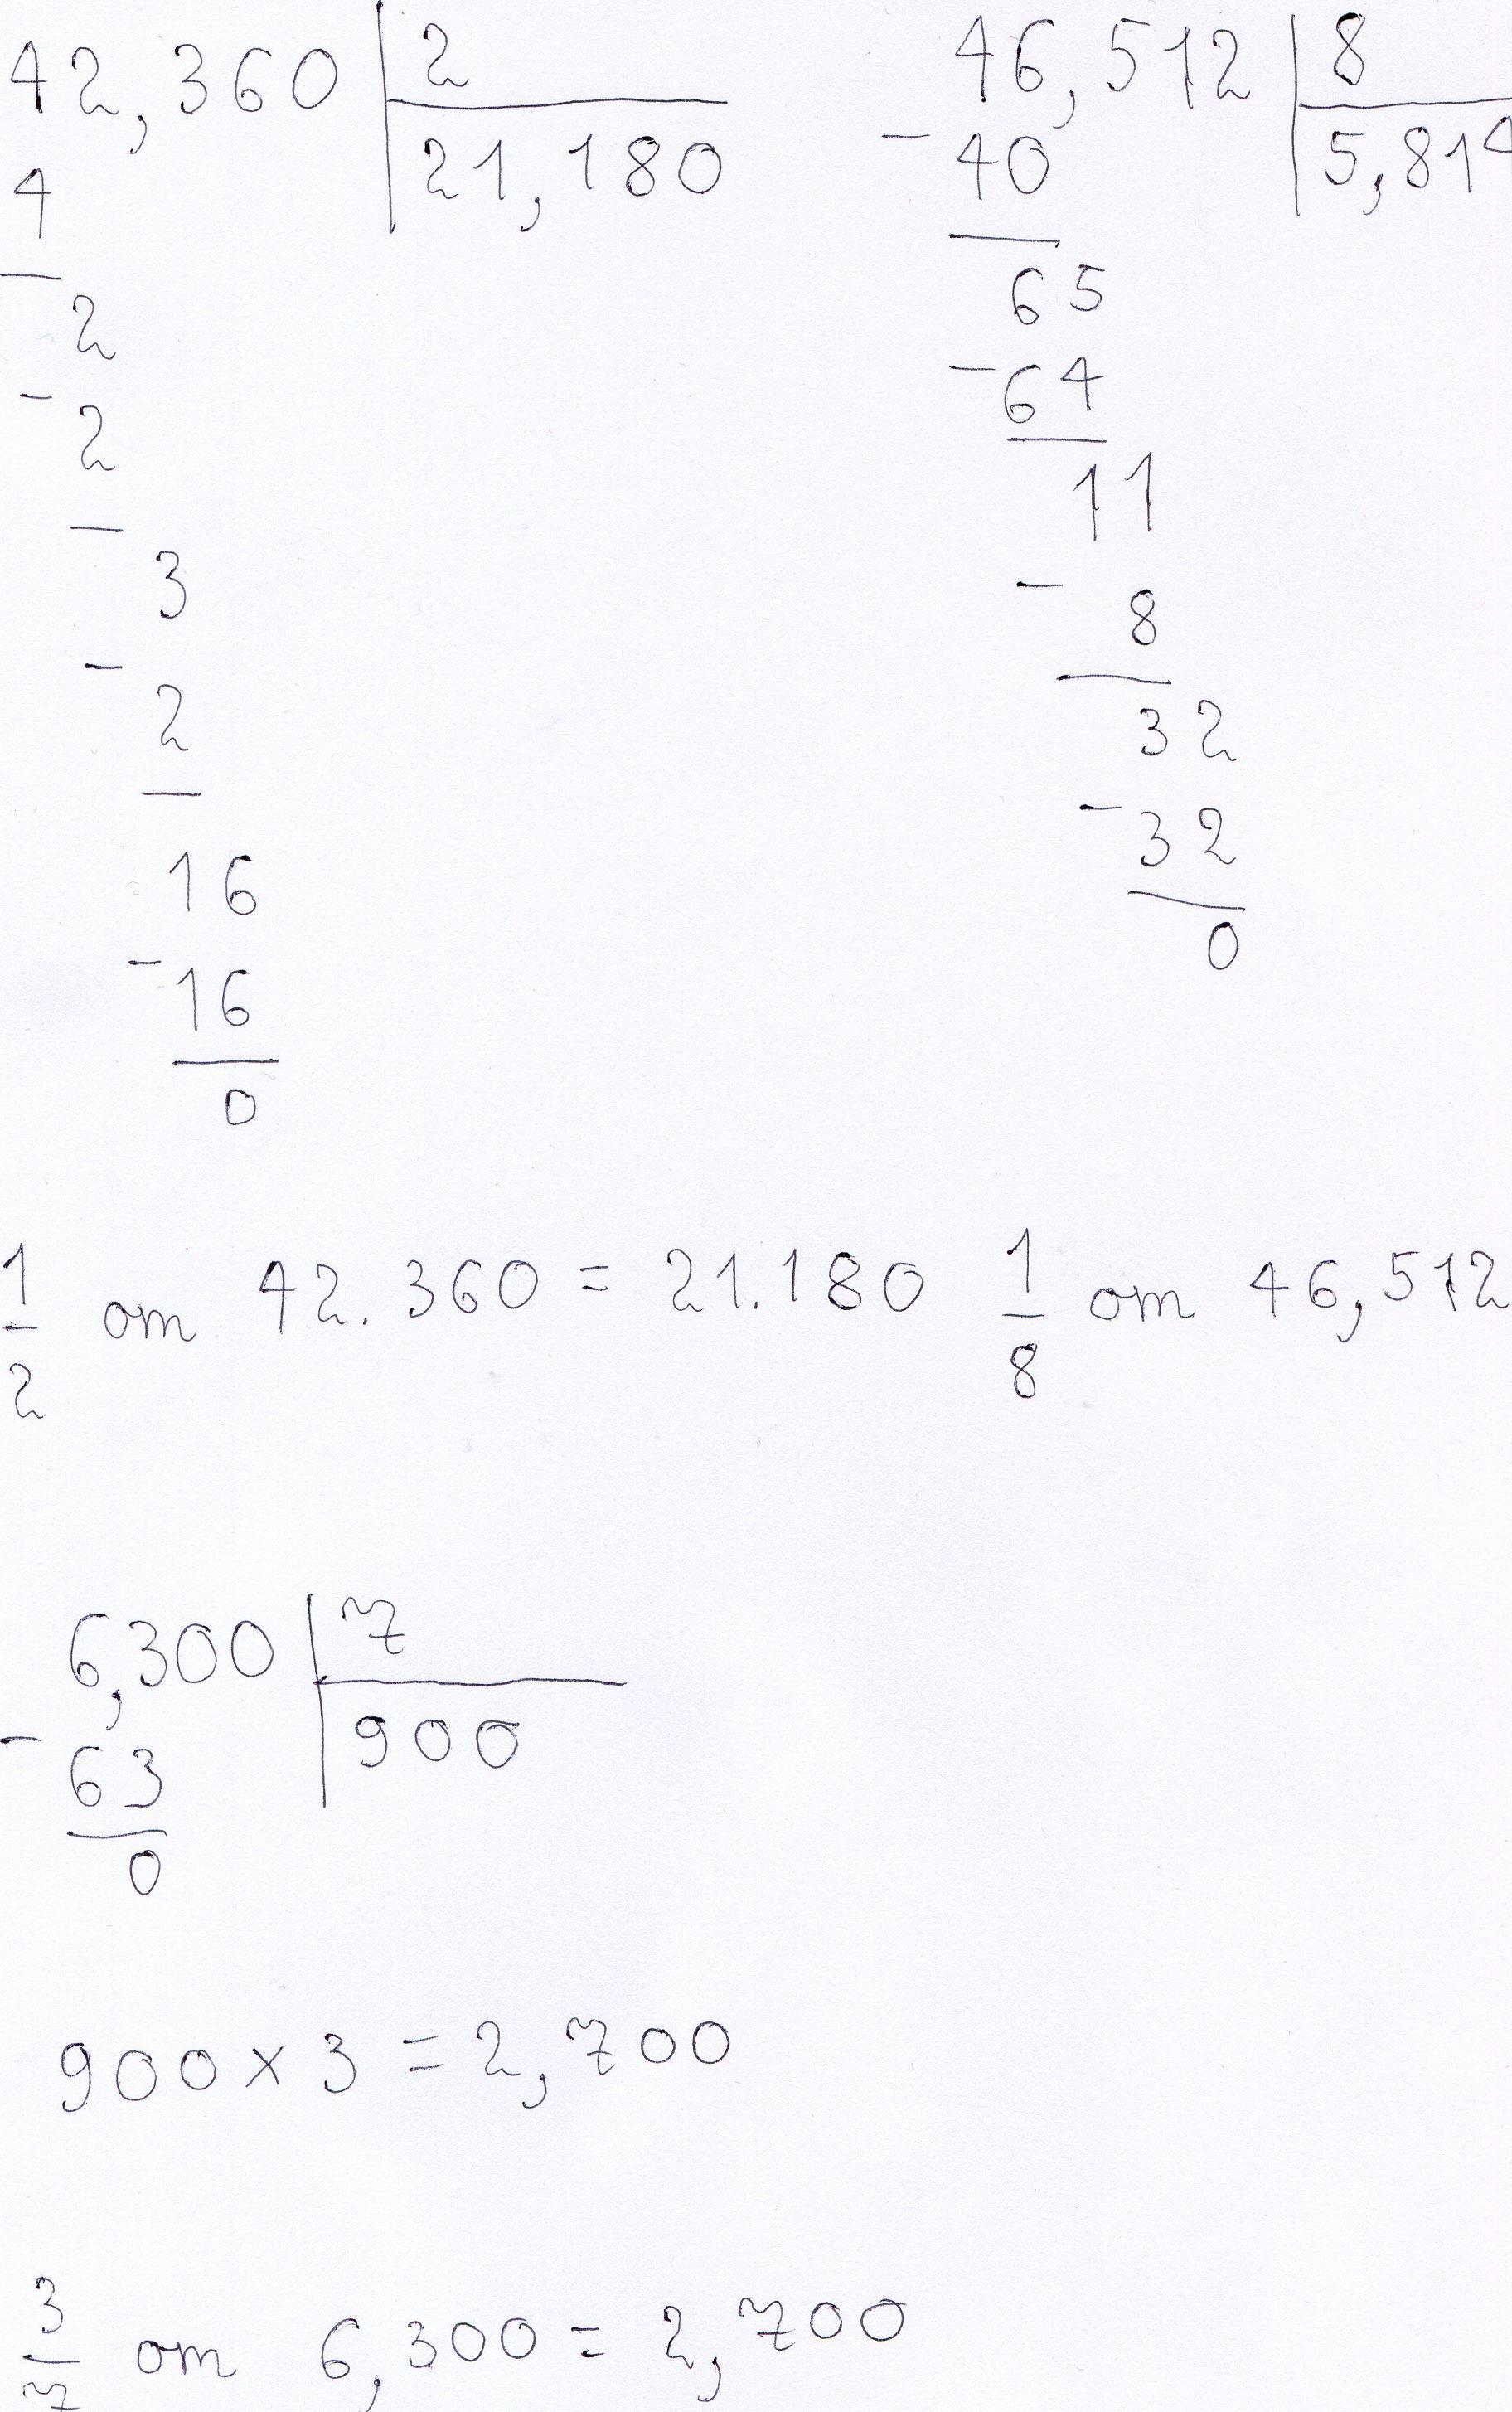 42,360 | 2
4 | 21,180
2
- 2
3
- 2
16
- 16
0
46,512 | 8
- 40 | 5,814
65
- 64
11
- 8
32
- 32
0
1/2 от 42.360 = 21.180 1/8 от 46,512
6,300 | 7
- 63 | 900
0
900 x 3 = 2,700
3/7 от 6,300 = 2,700